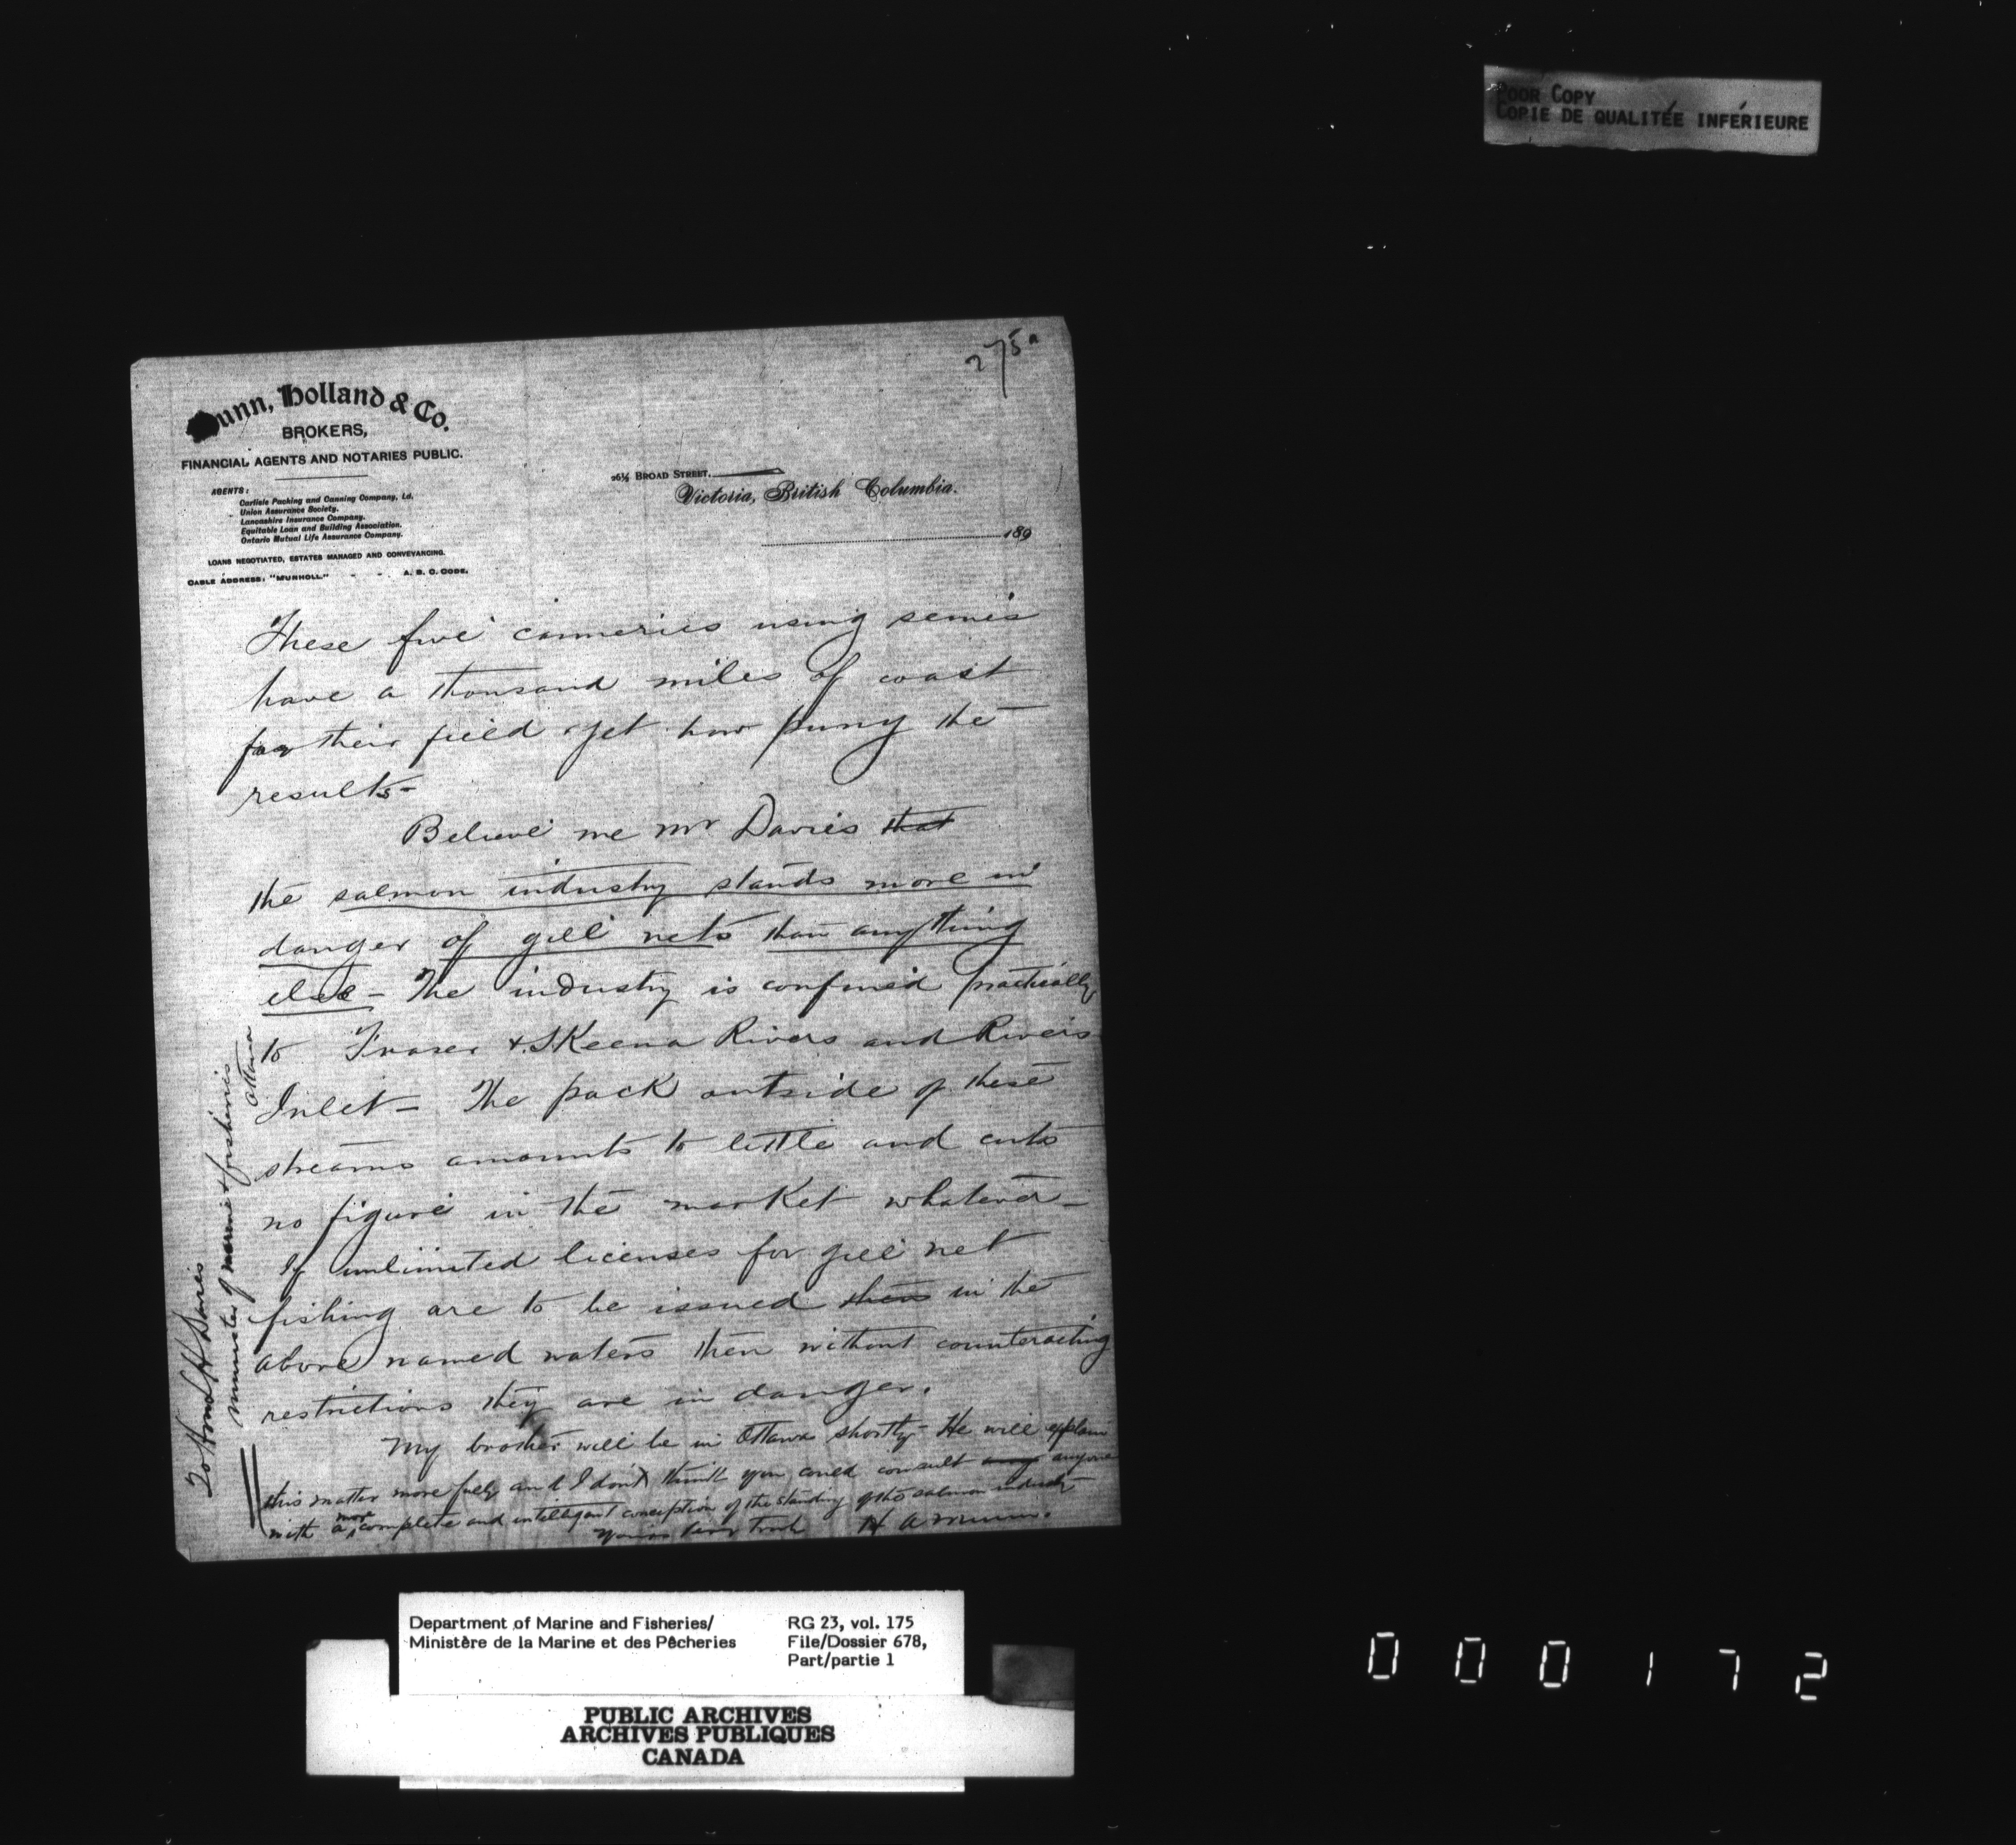 POOR COPY
COPIE DE QUALITÉE INFÉRIEURE
275a
Munn, Holland & Co.
BROKERS,
FINANCIAL AGENTS AND NOTARIES PUBLIC.
AGENTS:
Carlisle Packing and Canning Company, Ld.
Union Assurance Society.
Lancashire Insurance Company.
Equitable Loan and Building Association.
Ontario Mutual Life Assurance Company.
LOANS NEGOTIATED, ESTATES MANAGED AND CONVEYANCING.
CABLE ADDRESS: "MUNHOLL" - - A. B. C. CODE.
26½ BROAD STREET.
Victoria, British Columbia.
189
These five canneries using seines
have a thousand miles of coast
for their field & yet how puny the
results -
Believe me Mr Davies that
the salmon industry stands more in
danger of gill nets than anything
else - The industry is confined practically
to Fraser & Skeena Rivers and Rivers
Inlet - The pack outside of these
streams amounts to little and cuts
no figure in the market whatever -
If unlimited licenses for gill net
fishing are to be issued then in the
above named waters then without counteracting
restrictions they are in danger.
My brother will be in Ottawa shortly - He will explain
this matter more fully and I don't think you could consult anyone
with a more complete and intelligent conception of the standing of the salmon industry
Yours very truly H A Munn.
To Hon L H Davies
Minister of marine & fisheries
Ottawa
Department of Marine and Fisheries/
Ministère de la Marine et des Pêcheries
RG 23, vol. 175
File/Dossier 678,
Part/partie 1
PUBLIC ARCHIVES
ARCHIVES PUBLIQUES
CANADA
000172